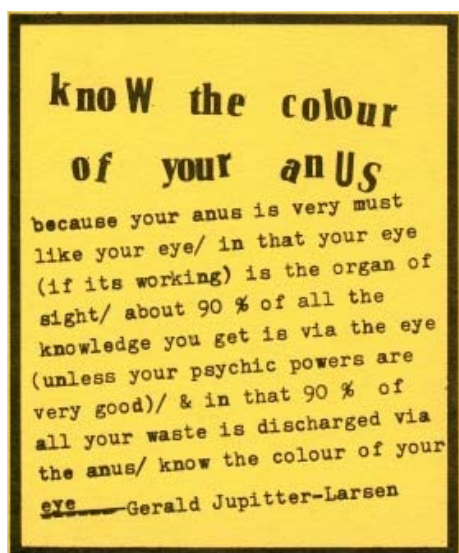 knoW the colour
of your anUS
because your anus is very must
like your eye/ in that your eye
(if its working) is the organ of
sight/ about 90 % of all the
knowledge you get is via the eye
(unless your psychic powers are
very good)/ & in that 90 % of
all your waste is discharged via
the anus/ know the colour of your
eye——Gerald Jupitter-Larsen